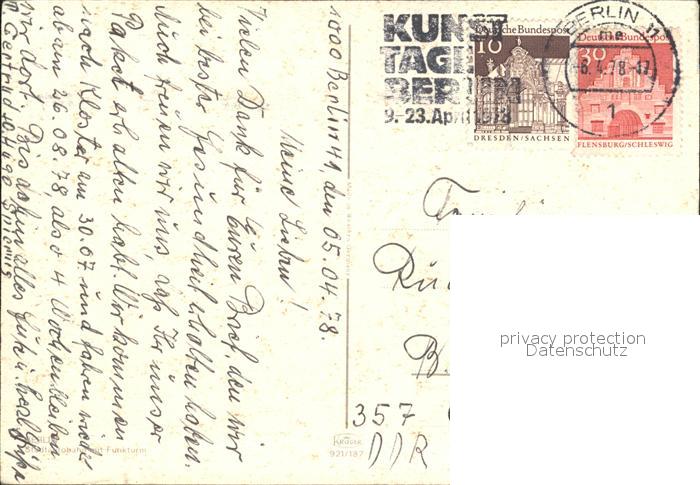 1000 Berlin 41, den 05.04.78.
Meine Lieben!
Vielen Dank für Euren Brief, den wir
bei bester Gesundheit erhalten haben.
Auch freuen wir uns, daß Ihr unser
Paket erhalten habt. Wir kommen
nach Kloster am 30.07. und fahren wieder
ab am 26.08.78, also 4 Wochen bleiben
wir dort. Bis dahin alles Gute u. herzl. Grüße
Gertrud
KUNST
TAGE
BERLIN
9.-23. April 1978
Deutsche Bundespost
10
DRESDEN/SACHSEN
Deutsche Bundespost
30
FLENSBURG/SCHLESWIG
BERLIN
-6.4.78-17
1
Rü
B.
357
DDR
privacy protection
Datenschutz
BERLIN
Stadtautobahn mit Funkturm
KRÜGER
921/187